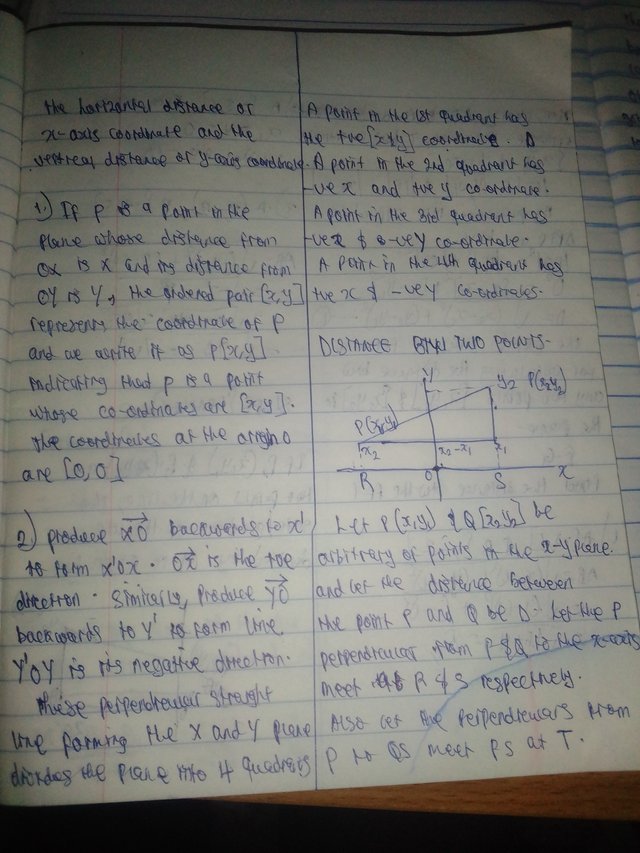 the horizontal distance or
x-axis coordinate and the
vertical distance or y-axis coordinate.
1) If P is a point in the
plane whose distance from
OX is x and its distance from
OY is Y, the ordered pair [x,y]
represents the coordinate of P
and we write it as P[x,y]
indicating that P is a point
whose co-ordinates are [x,y].
the coordinates at the origin O
are [0,0]
2) produce XO backwards to x'
to form x'Ox. OX is the +ve
direction. Similarly, produce YO
backwards to Y' to form line
Y'OY is its negative direction.
These perpendicular straight
line forming the X and Y plane
divides the plane into 4 quadrants
A point in the 1st quadrant has
the +ve [x & y] coordinate.
A point in the 2nd quadrant has
-ve x and +ve y co-ordinate.
A point in the 3rd quadrant has
-ve x & -ve y co-ordinate.
A point in the 4th quadrant has
+ve x & -ve y co-ordinates.
DISTANCE BTWN TWO POINTS-
Y
y2 P(x2y2)
P(x1y1)
x2 x2-x1 x1
R O S x
Let P(x,y1) & Q[x2y2] be
arbitrary of points in the x-y plane.
and let the distance between
the point P and Q be D. Let the P
perpendicular from P & Q to the x-axis
meet R & S respectively.
Also let the perpendiculars from
P to QS meet PS at T.